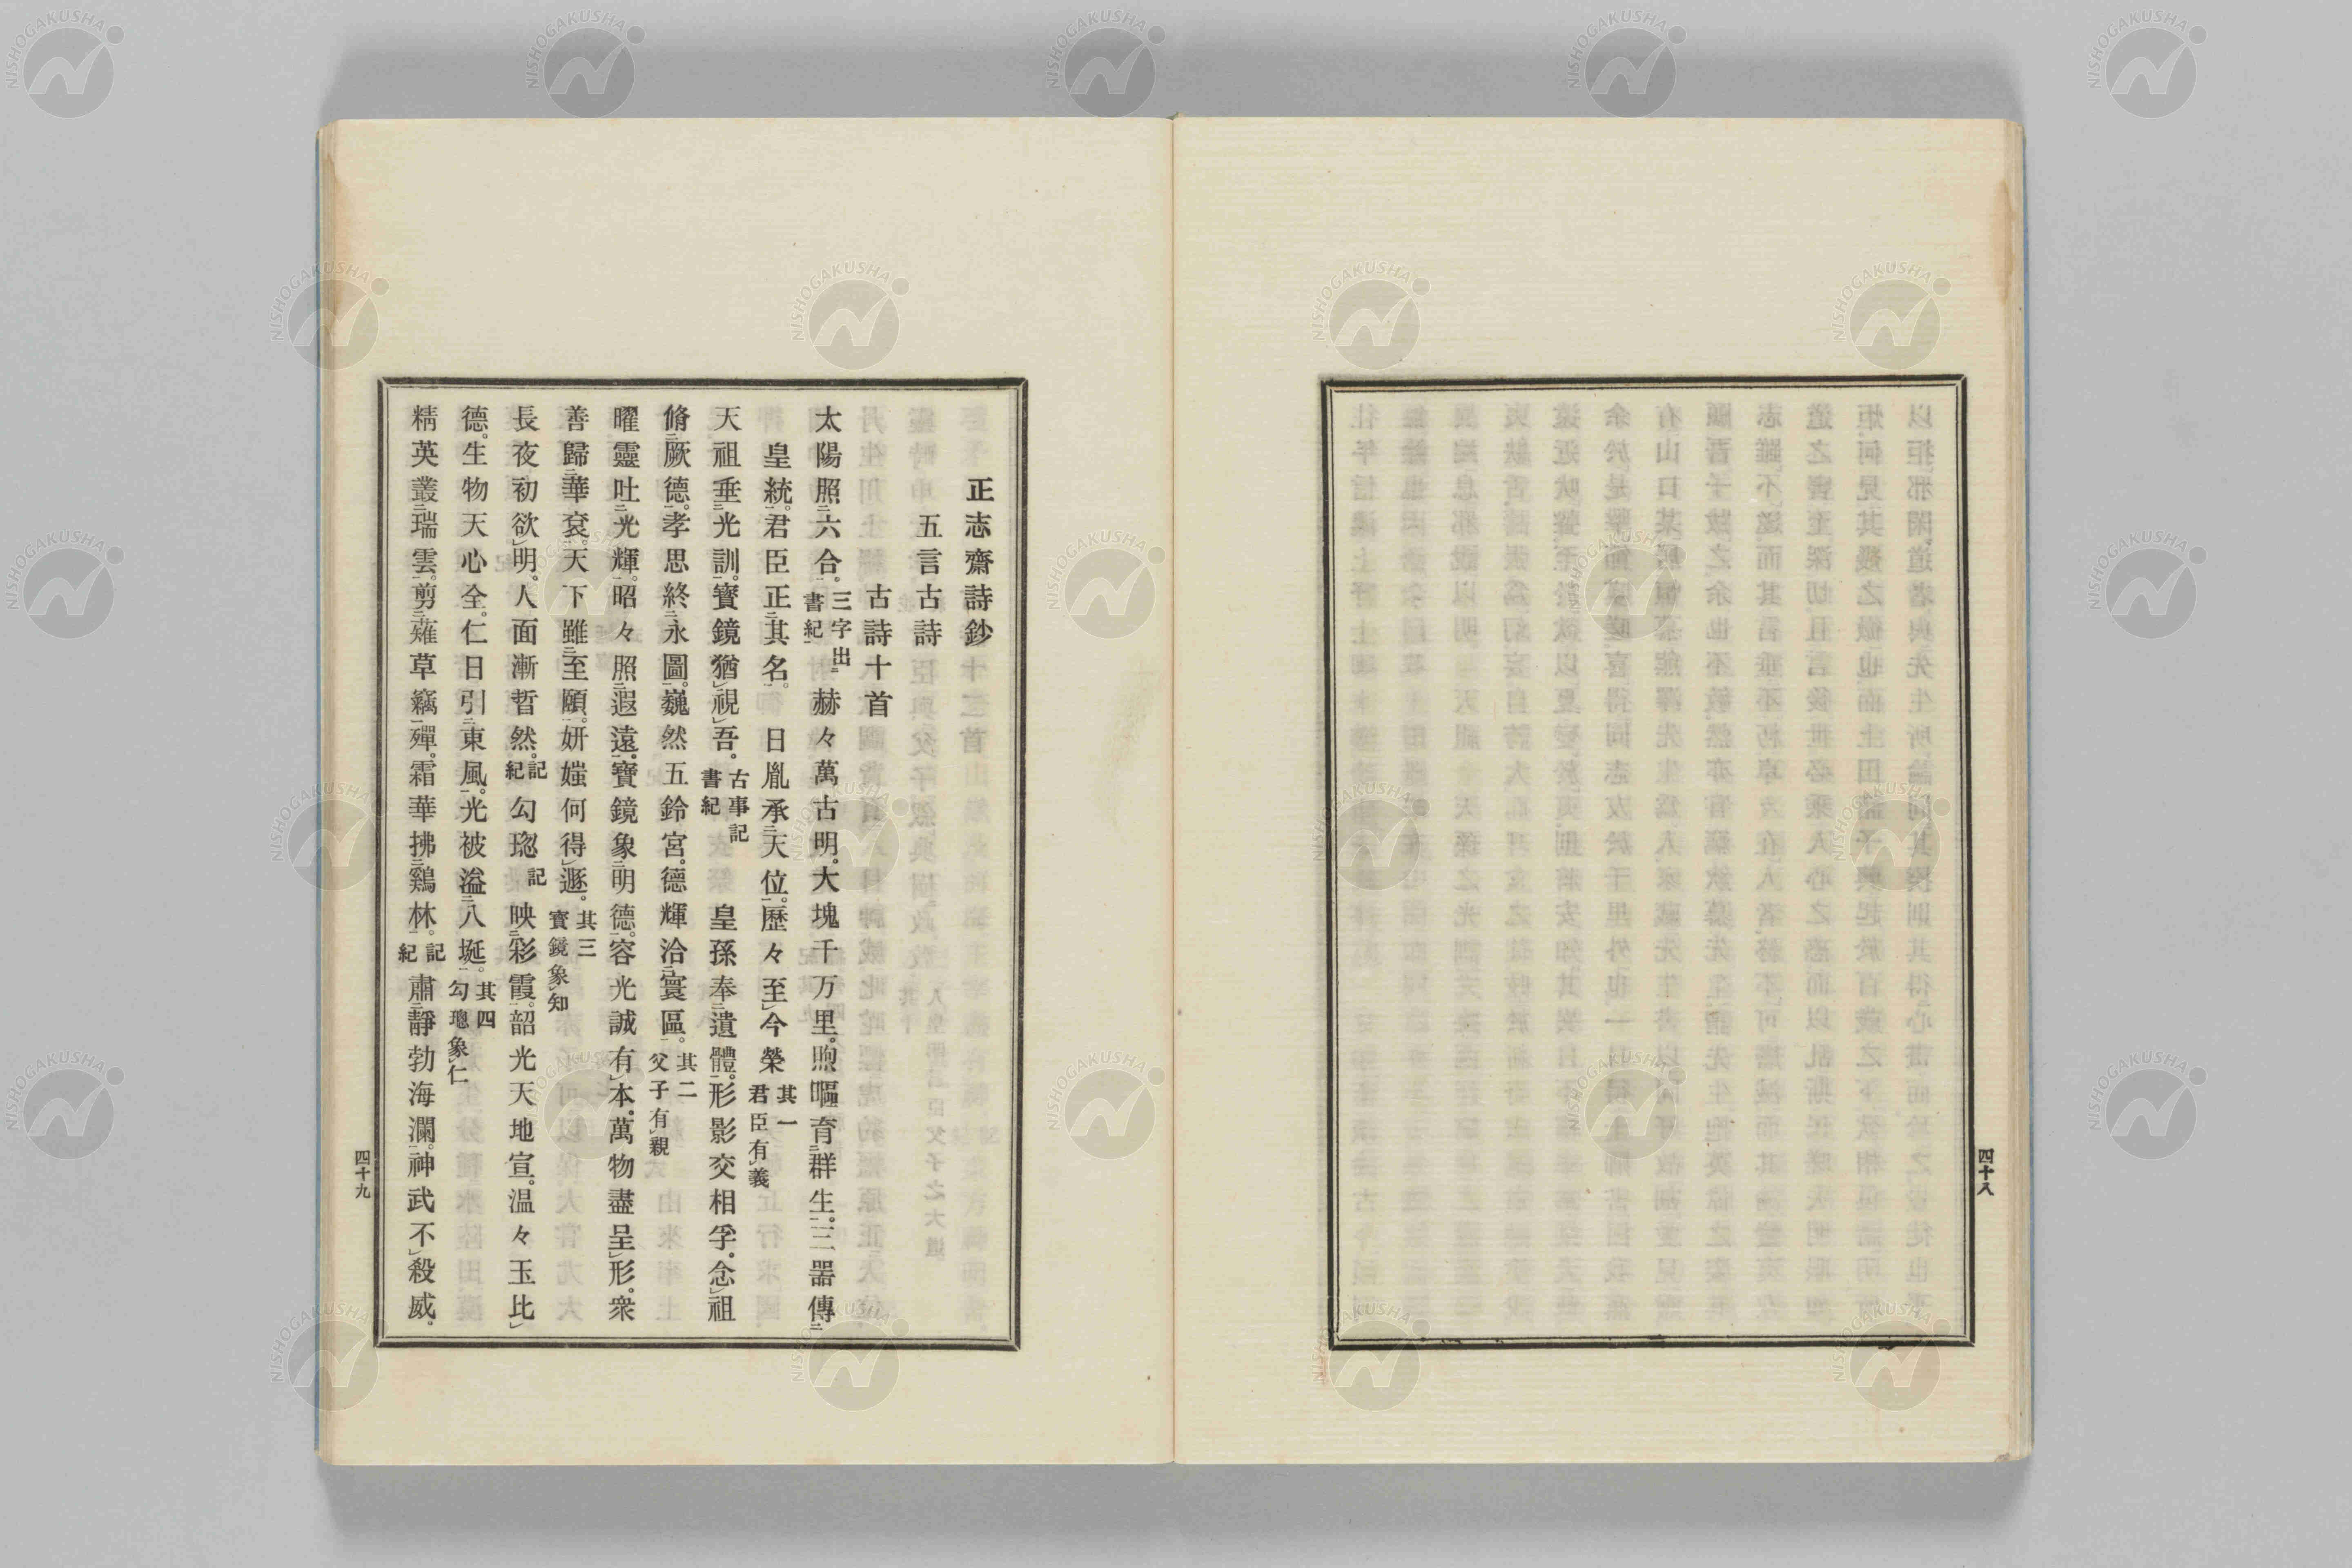 四十八
正志齋詩鈔
五言古詩
古詩十首
太陽照六合。三字出書紀 赫々萬古明。大塊千万里。煦嘔育群生。三器傳
皇統。君臣正其名。 日胤承天位。歷々至今榮 其一君臣有義
天祖垂光訓。寶鏡猶視吾。古事記書紀 皇孫奉遺體。形影交相孚。念祖
脩厥德。孝思終永圖。巍然五鈴宮。德輝洽寰區。其二父子有親
曜靈吐光輝。昭々照遐遠。寶鏡象明德。容光誠有本。萬物盡呈形。衆
善歸華袞。天下雖至賾。妍媸何得遯。其三寶鏡象知
長夜初欲明。人面漸晢然。記紀 勾璁記 映彩霞。韶光天地宣。温々玉比
德。生物天心全。仁日引東風。光被溢八埏。其四勾璁象仁
精英叢瑞雲。剪薙草竊殫。霜華拂鷄林。記紀 肅靜勃海瀾。神武不殺威。
四十九
NISHOGAKUSHA